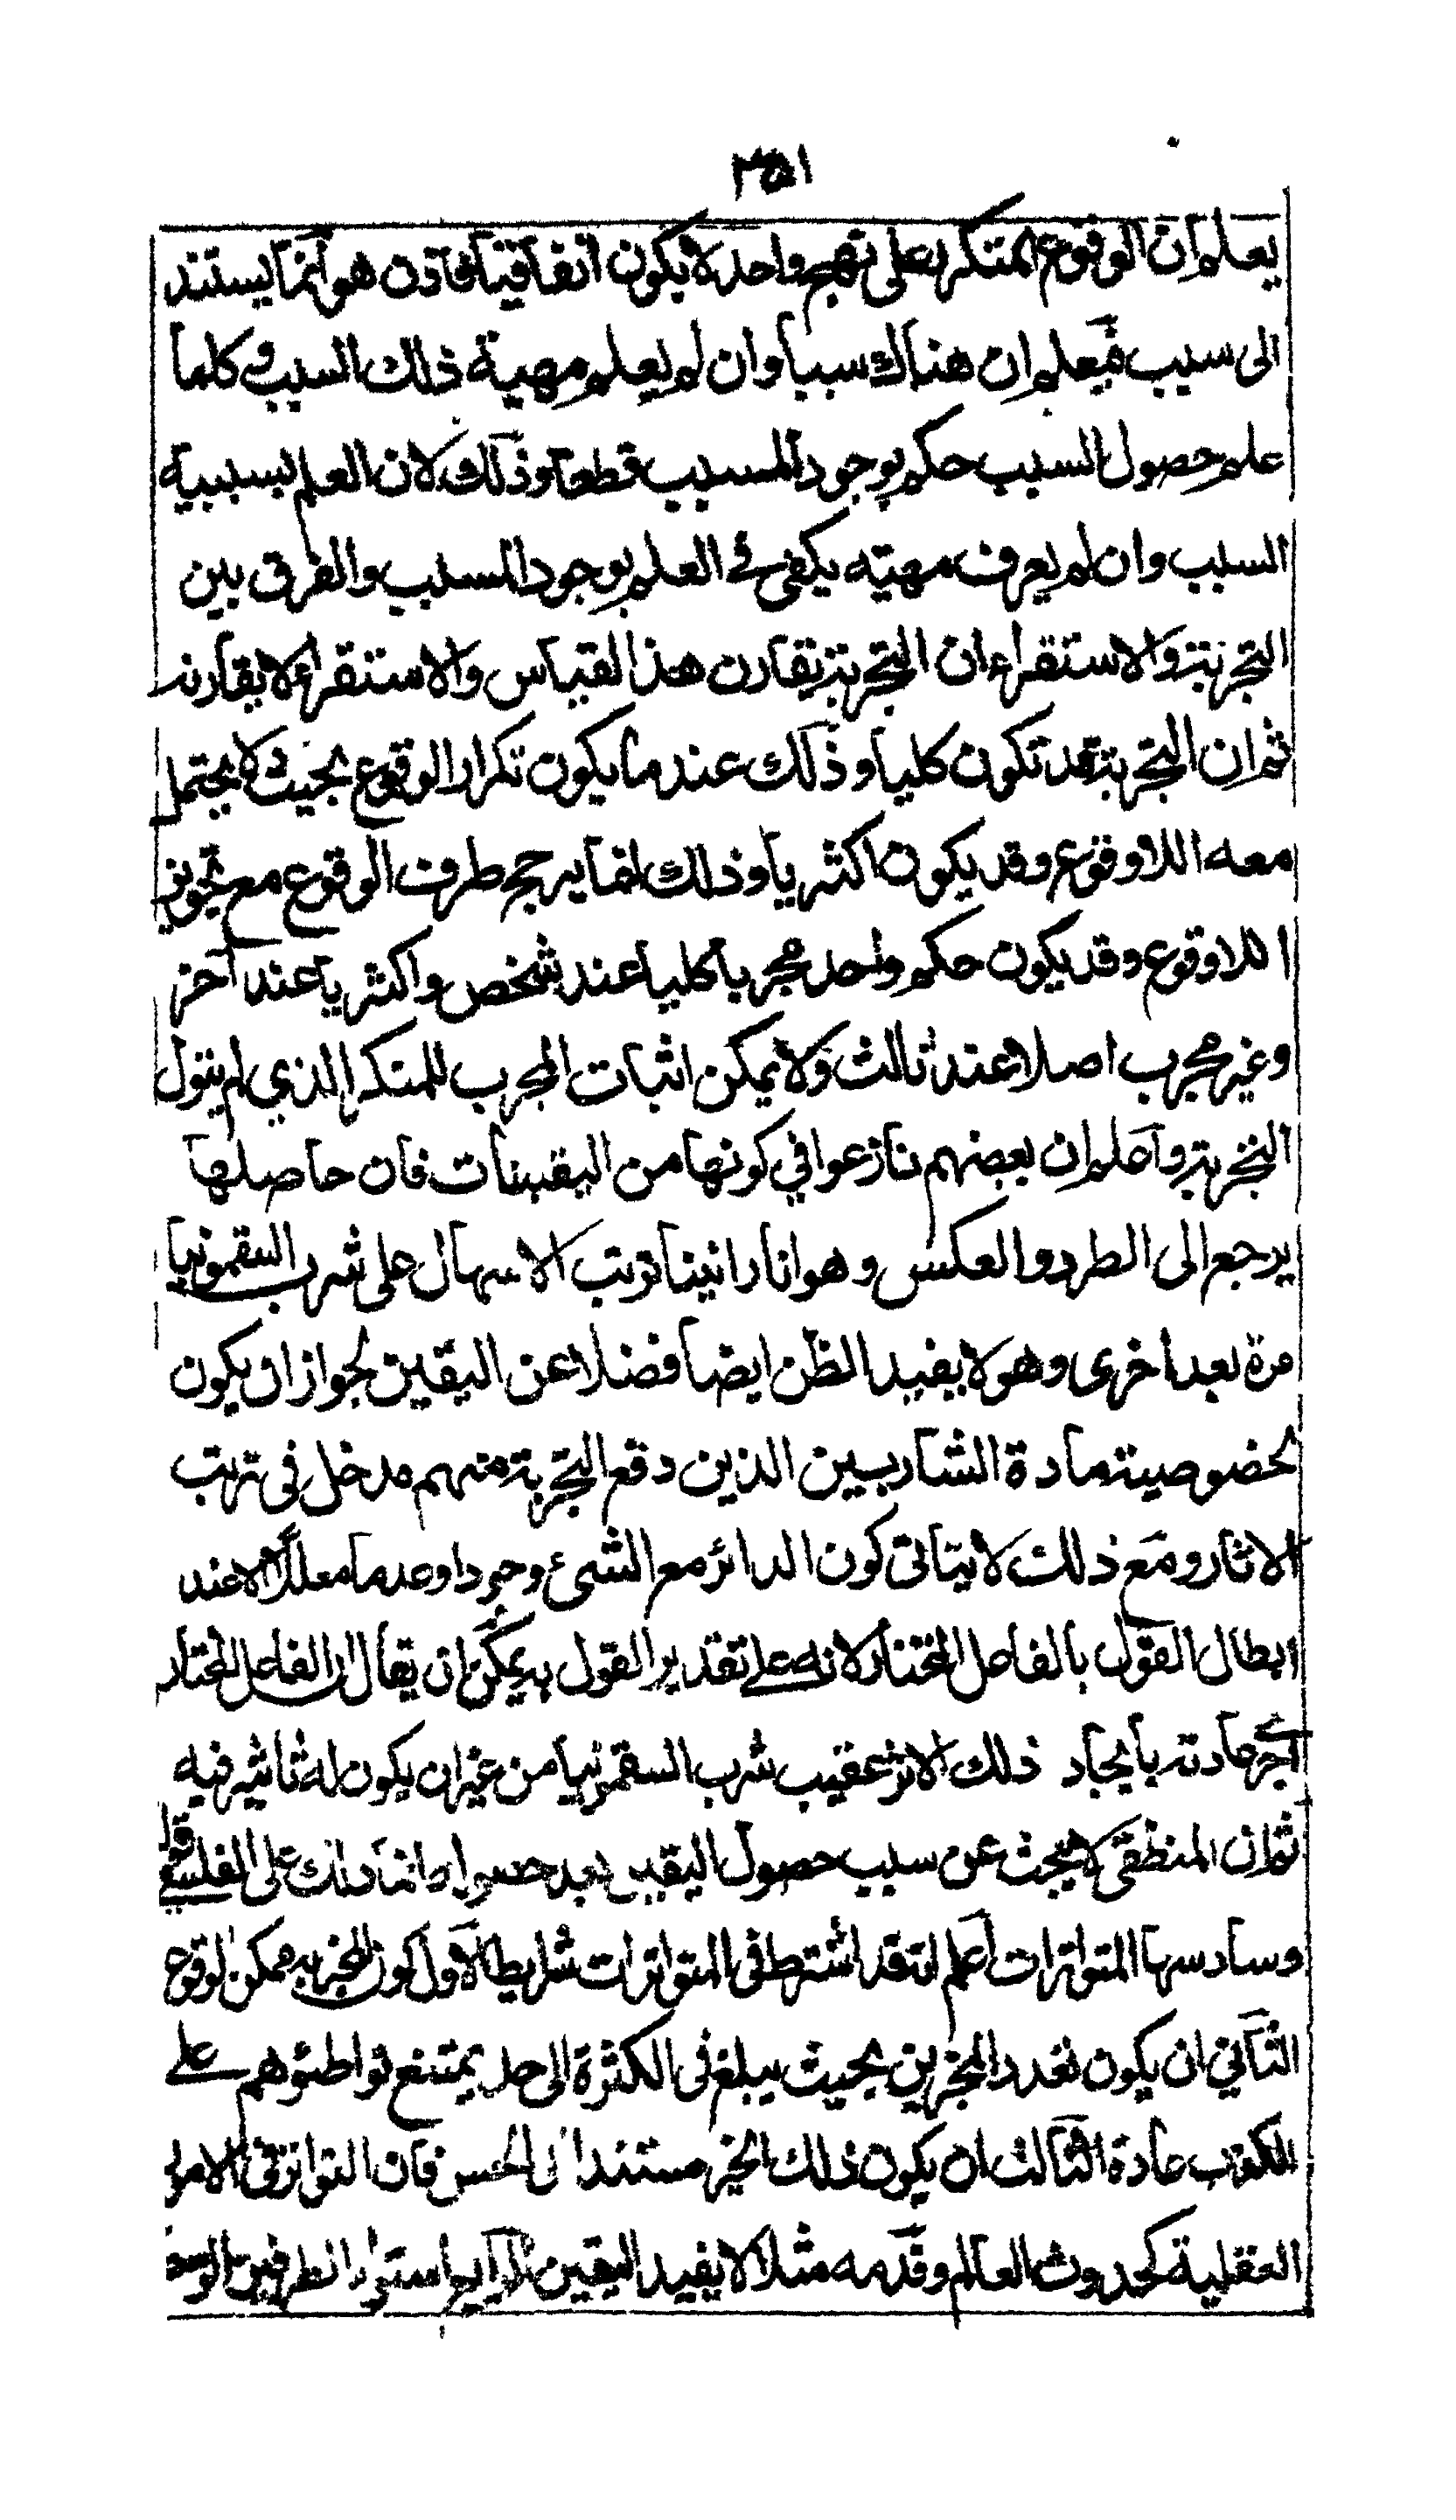 ٣٥١
يعلم ان الوقوع المتكرر على نهج واحد لا يكون اتفاقيا فاذن هو انما يستند
الى سبب فيعلم ان هناك سببا وان لم يعلم مهية ذلك السبب وكلما
علم حصول السبب حكم بوجود المسبب قطعا وذلك لان العلم بسببية
السبب وان لم يعرف مهيته يكفى في العلم بوجود المسبب والفرق بين
التجربة والاستقراء ان التجربة تقارن هذا القياس والاستقراء لا يقارنه
ثم ان التجربة قد تكون كليا وذلك عند ما يكون تكرار الوقوع بحيث لا يحتمل
معه اللاوقوع وقد يكون اكثريا وذلك انما يرجح طرف الوقوع مع تجويز
اللاوقوع وقد يكون حكم واحد مجربا كليا عند شخص واكثريا عند آخر
وغير مجرب اصلا عند ثالث ولا يمكن اثبات المجرب للمنكر الذي لم يتول
التجربة واعلم ان بعضهم نازعوا في كونها من اليقينات فان حاصلها
يرجع الى الطرد والعكس وهو انا رائينا ترتب الاسهال على شرب السقمونيا
مرة بعد اخرى وهو لا يفيد الظن ايضا فضلا عن اليقين لجواز ان يكون
لخصوصية مادة الشاربين الذين وقع التجربة منهم مدخل فى ترتب
الاثار ومع ذلك لا يتاتى كون الدائر مع الشىء وجودا وعدما معللا الا عند
ابطال القول بالفاعل المختار لانه على تقدير القول به يمكن ان يقال ان الفاعل المختار
اجرى عادته بايجاد ذلك الاثر عقيب شرب السقمونيا من غير ان يكون له تاثير فيه
ثم ان المنطقى لا يبحث عن سبب حصول اليقين بعد حصوله وانما ذلك على الفلسفي قوله
وسادسها المتواترات اعلم انه قد اشترط فى المتواترات شرايط الاول كون المخبر به ممكن الوقوع
الثانى ان يكون تعدد المخبرين بحيث يبلغ فى الكثرة الى حد يمتنع تواطئوهم على
الكذب عادة الثالث ان يكون ذلك الخبر مستندا الى الحس فان التواتر فى الامور
العقلية كحدوث العالم وقدمه مثلا لا يفيد اليقين الرابع استواء الطرفين والوسط